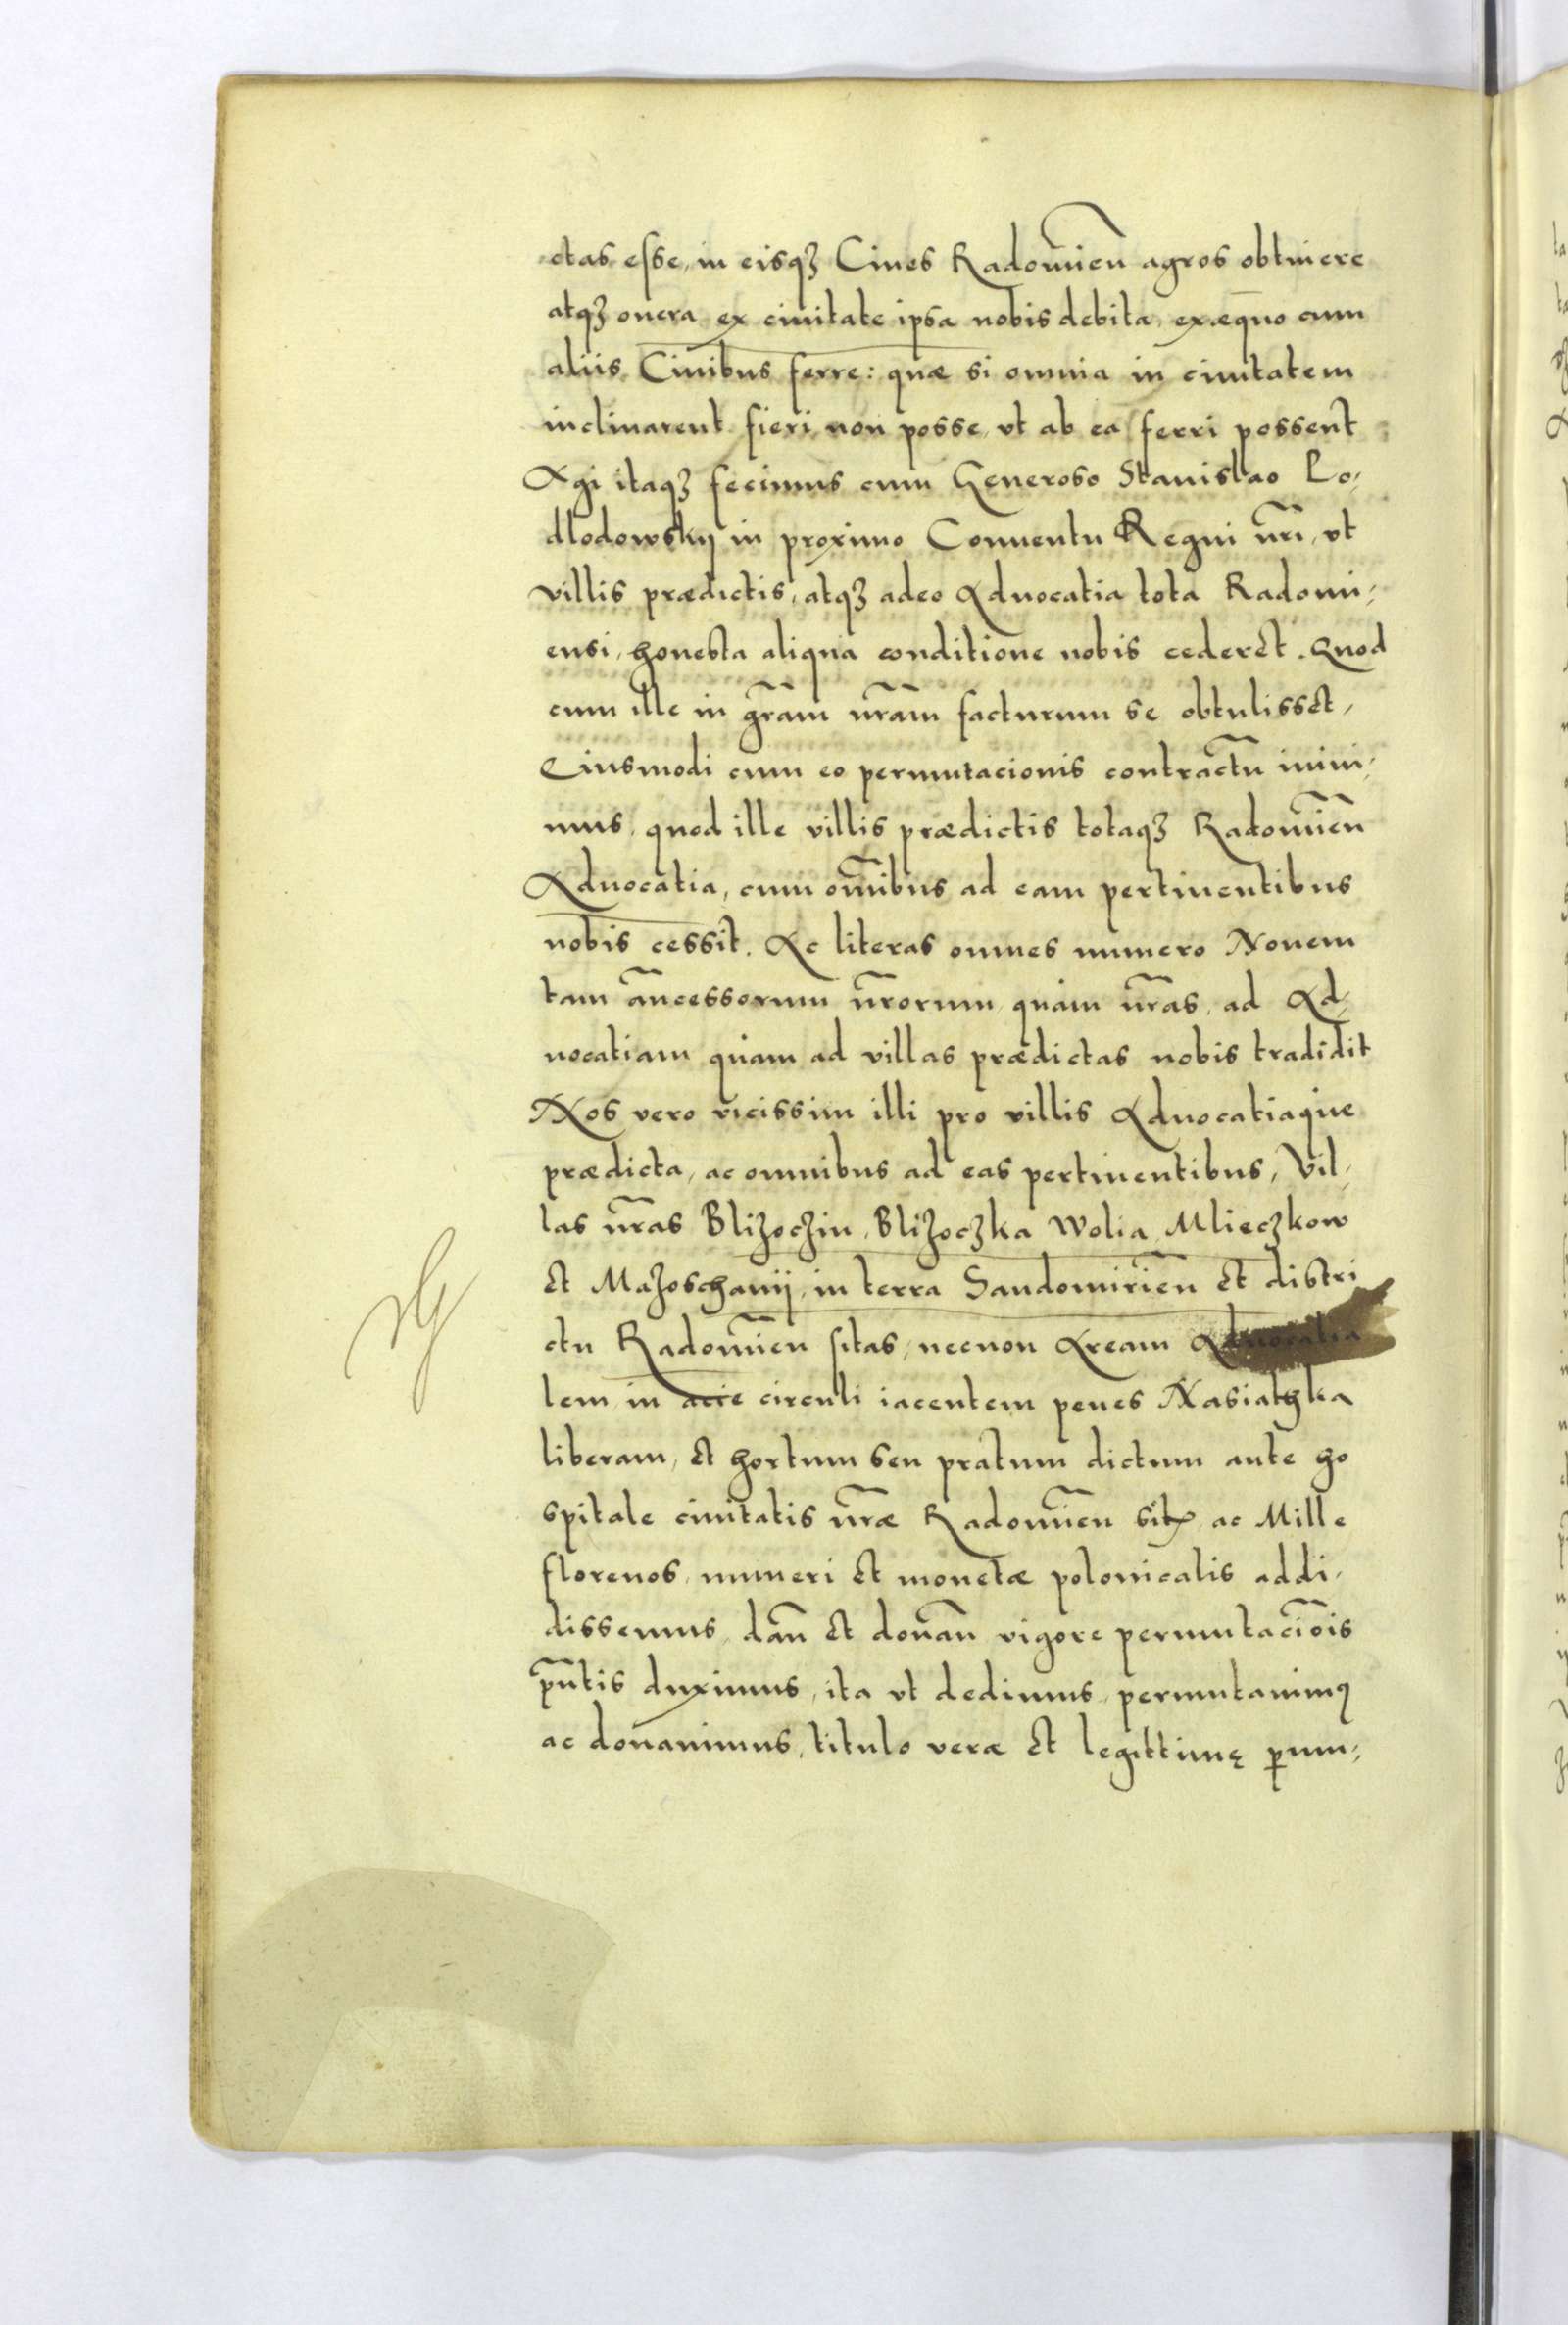 ctas esse, in eisqȝ Ciues Radomieñ agros obtinere
atqȝ onera ex ciuitate ipsa nobis debita, exæquo cum
aliis Ciuibus ferre: quæ si omnia in ciuitatem
inclinarent fieri non posse, vt ab ea ferri possent
Agi itaqȝ fecimus cum Generoso Stanislao Lo-
dlodowskij in proximo Conuentu Regni nr̃i, vt
villis prædictis, atqȝ adeo Aduocatia tota Radomi-
ensi, honesta aliqua conditione nobis cederet. Quod
cum ille in gr̃am nr̃am facturum se obtulisset,
Eiusmodi cum eo permutacionis contractũ iniui-
mus, quod ille villis prædictis totaqȝ Radomieñ
Aduocatia, cum om̃ibus ad eam pertinentibus
nobis cessit. Ac literas omnes numero Nouem
tam ãncessorum nr̃orum, quam nr̃as, ad Ad-
uocatiam quam ad villas prædictas nobis tradidit
Nos vero vicissim illi pro villis Aduocatiaque
prædicta, ac omnibus ad eas pertinentibus, Vil-
las nr̃as Blizoczin, Blizoczka Wolia, Mlieczkow
et Mazoschanij, in terra Sandomirieñ et distri
ctu Radomieñ sitas, necnon Aream Aduocatia
lem in acie circuli iacentem penes Nasiathka
liberam, et hortum seu pratum dictum ante ho
spitale ciuitatis nr̃æ Radomieñ sit, ac Mille
florenos, numeri et monetæ polonicalis addi-
dissemus, dañ et donañ vigore permutaciõis
pñtis duximus, ita vt dedimus, permutauimꝰ
ac donauimus, titulo veræ et legittimę ꝑmu-